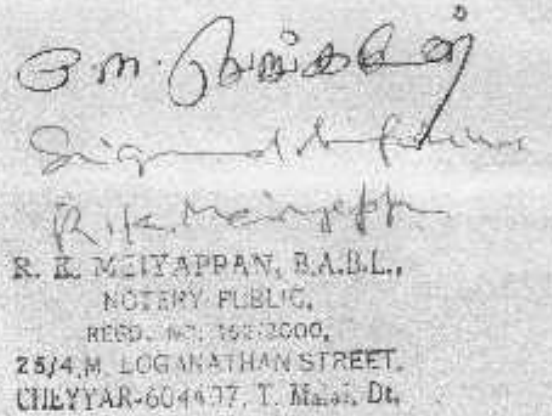 Signed before me
R.K. Meiyappan
R. K. MEIYAPPAN, B.A.B.L.,
NOTERY PUBLIC,
REGD. NO. 162/2000,
25/4, M. LOGANATHAN STREET,
CHEYYAR-604407, T. Malai, Dt.